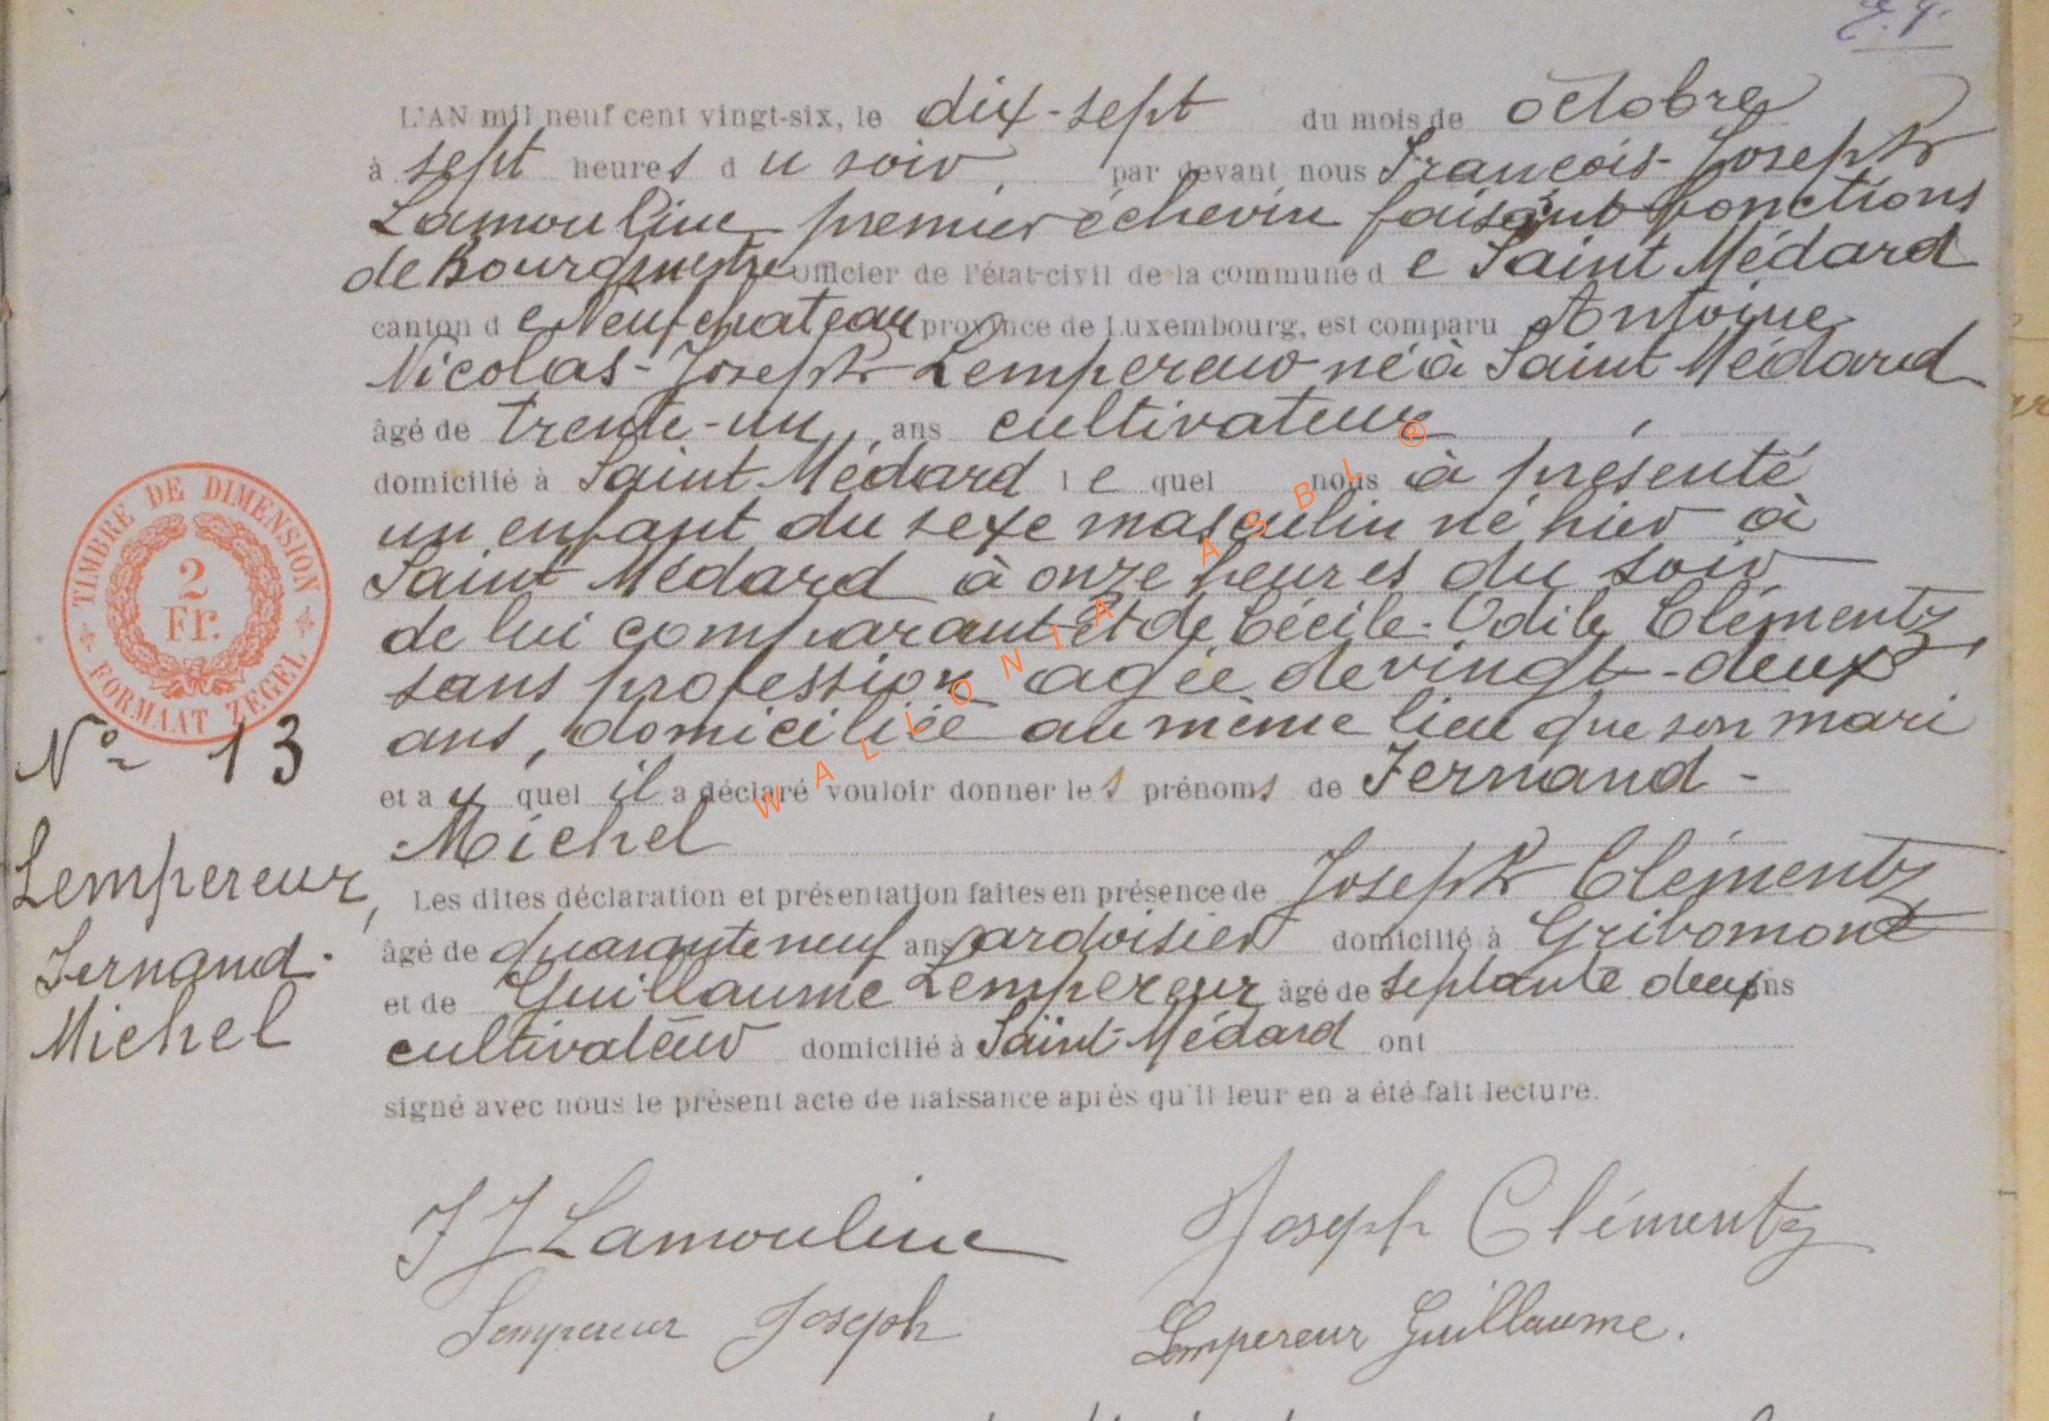 L'AN mil neuf cent vingt-six, le dix-sept du mois de octobre
à sept heures du soir, par devant nous François-Joseph
Lamouline premier échevin faisant fonctions
de Bourgmestre Officier de l'état-civil de la commune de Saint Médard
canton de Neufchateau province de Luxembourg, est comparu Antoine
Nicolas-Joseph Lempereur né à Saint Médard
âgé de trente-un ans cultivateur,
domicilié à Saint-Médard lequel nous à présenté
un enfant du sexe masculin né hier à
Saint Médard à onze heures du soir
de lui comparant et de Cécile-Odile Clémentz,
sans profession agée de vingt-deux
ans, domiciliée au même lieu que son mari
et auquel il a déclaré vouloir donner les prénoms de Fernand-
Michel
Les dites déclaration et présentation faites en présence de Joseph Clémentz
âgé de quarante neuf ans ardoisier domicilié à Gribomont
et de Guillaume Lempereur âgé de septante deux ans
cultivateur domicilié à Saint-Médard ont
signé avec nous le présent acte de naissance après qu'il leur en a été fait lecture.
TIMBRE DE DIMENSION
2
Fr.
FORMAAT ZEGEL
No 13
Lempereur,
Fernand-
Michel
FJ Lamouline Joseph Clémentz
Lempereur Joseph Lempereur Guillaume.
WALLONIA ASBL ®